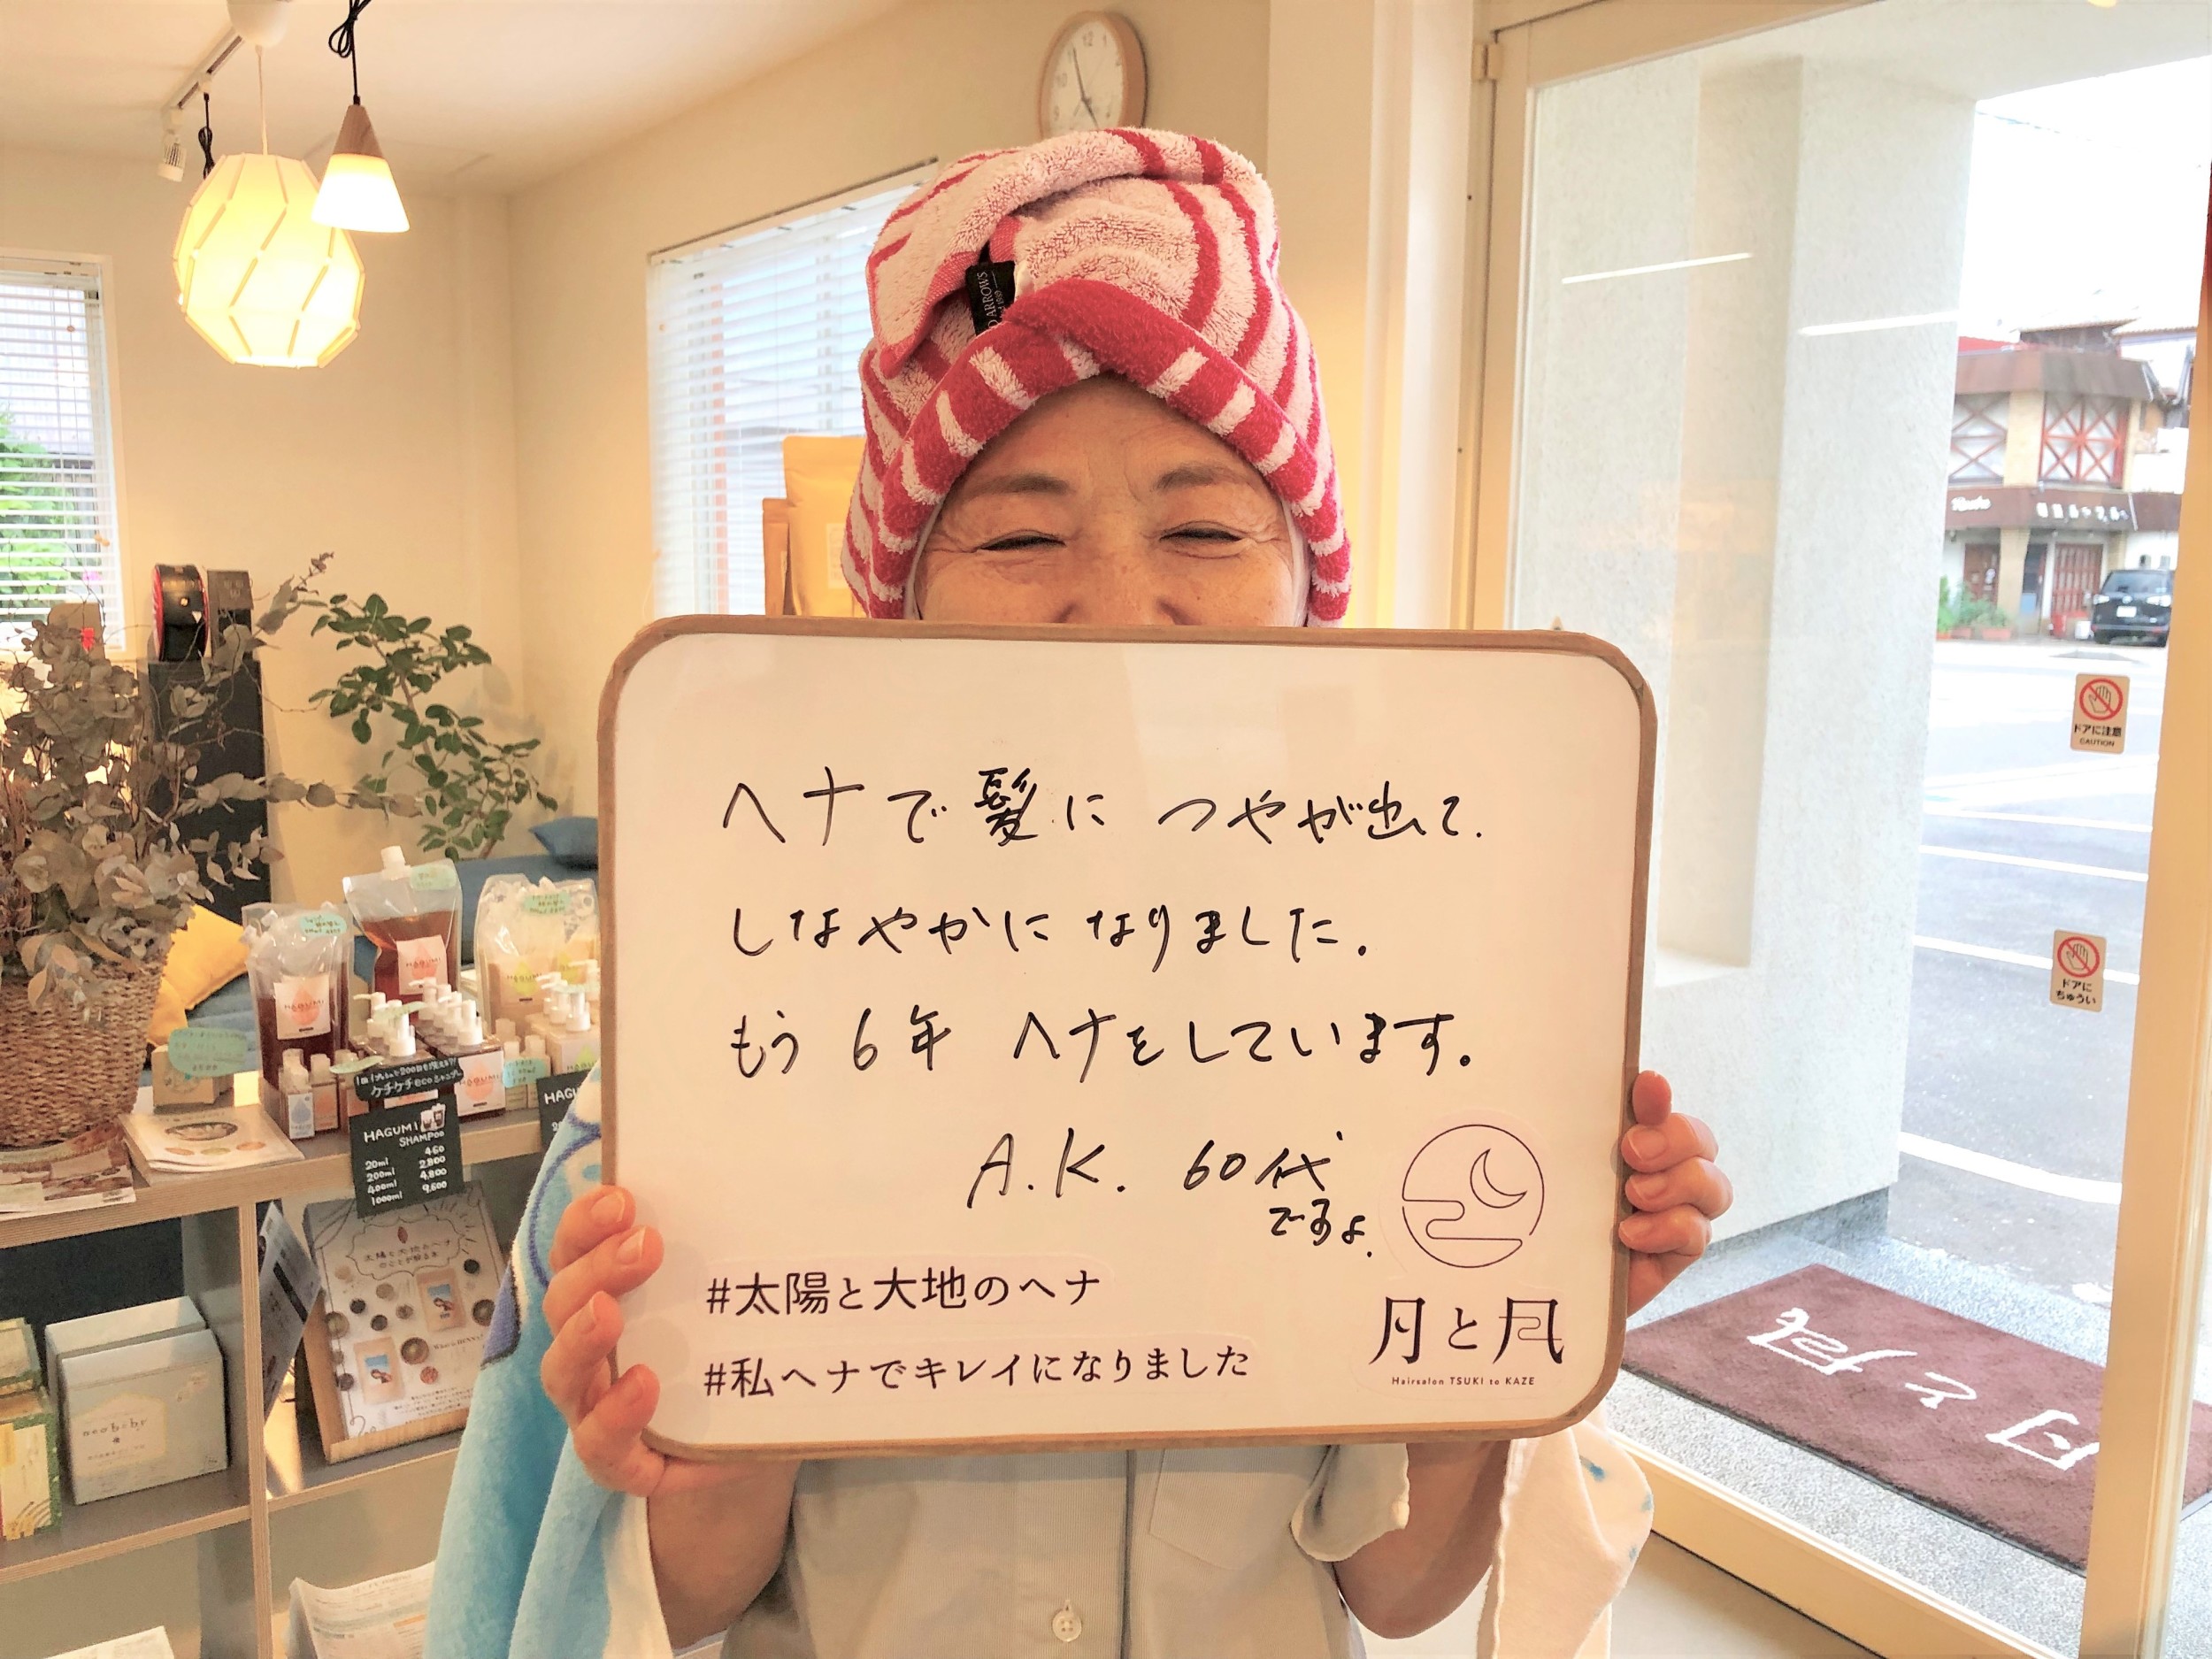 ARROWS
ヘナで髪に つやが出て.
しなやかに なりました.
もう 6年 ヘナをしています。
A.K. 60代
ですよ.
#太陽と大地のヘナ
#私ヘナでキレイになりました
月と風
Hairsalon TSUKI to KAZE
ドアに注意
CAUTION
ドアに
ちゅうい
月と風
HAGUMI
HAGUMI
ケチケチecoシャンプー
HAGUMI
SHAMPOO
20ml 460
200ml 2,800
400ml 4,800
1000ml 9,600
太陽と大地のヘナ